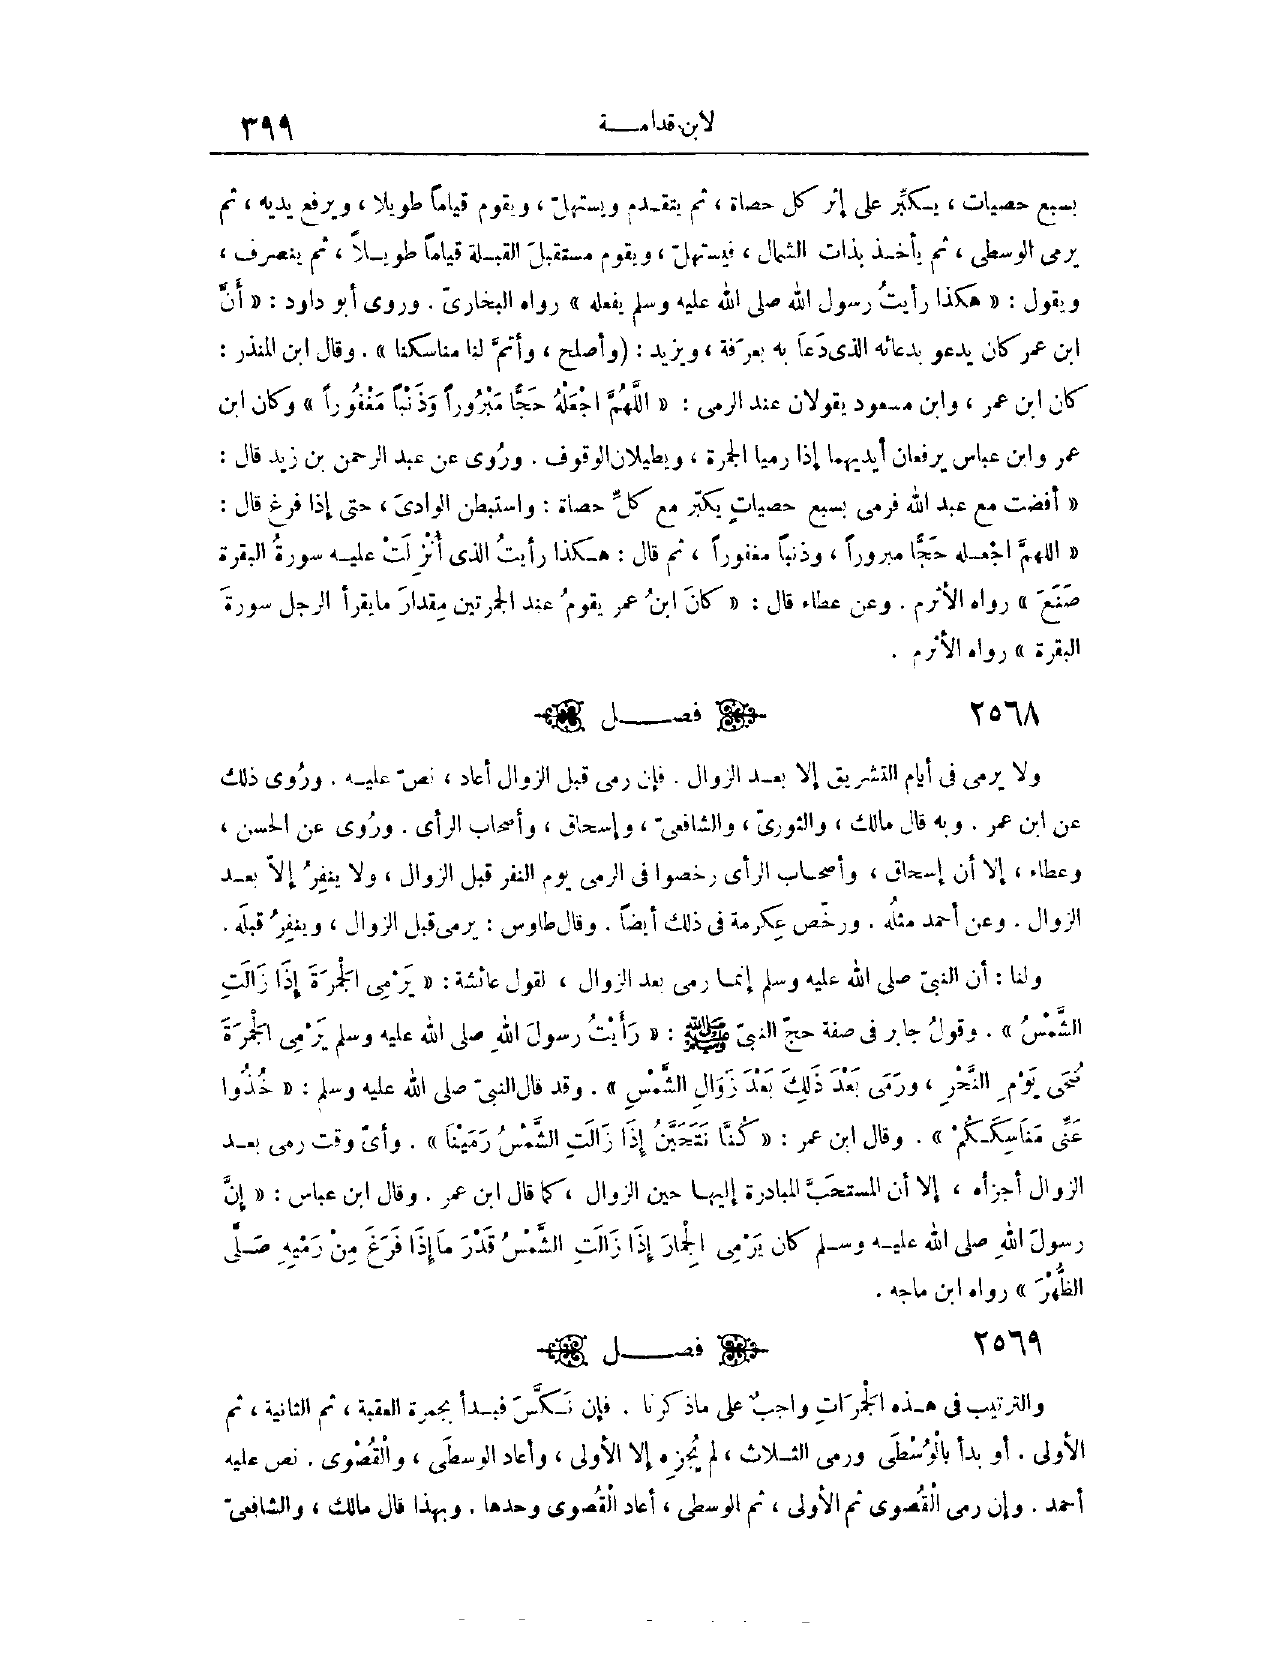 لابن قدامة ٣٩٩
بسبع حصيات ، يكبِّر على إثر كل حصاة ، ثم يتقدم ويستهلّ ، ويقوم قياماً طويلا ، ويرفع يديه ، ثم
يرمى الوسطى ، ثم يأخذ بذات الشمال ، فيستهلّ ، ويقوم مستقبلَ القبلة قياماً طويلاً ، ثم ينصرف ،
ويقول : « هكذا رأيتُ رسول الله صلى الله عليه وسلم يفعله » رواه البخارىّ . وروى أبو داود : « أنَّ
ابن عمر كان يدعو بدعائه الذى دَعاَ به بعرَفة ، ويزيد : (وأصلح ، وأتمَّ لنا مناسكنا » . وقال ابن المنذر :
كان ابن عمر ، وابن مسعود يقولان عند الرمى : « اللَّهُمَّ اجْعَلْهُ حَجًّا مَبْرُوراً وَذَنْباً مَغْفُوراً » وكان ابن
عمر وابن عباس يرفعان أيديهما إذا رميا الجمرة ، ويطيلان الوقوف . ورُوى عن عبد الرحمن بن زيد قال :
« أفضت مع عبد الله فرمى بسبع حصياتٍ يكبّر مع كلِّ حصاة : واستبطن الوادىَ ، حتى إذا فرغ قال :
« اللهمَّ اجعله حَجًّا مبروراً ، وذنباً مغفوراً ، ثم قال : هكذا رأيتُ الذى أُنْزِلَتْ عليه سورةُ البقرة
صَنَعَ » رواه الأثرم . وعن عطاء قال : « كانَ ابنُ عمر يقومُ عند الجمرتين مِقدارَ مايقرأ الرجل سورةَ
البقرة » رواه الأثرم .
٢٥٦٨ فصل
ولا يرمى فى أيام التشريق إلا بعد الزوال . فإن رمى قبل الزوال أعاد ، نصّ عليه . ورُوى ذلك
عن ابن عمر . وبه قال مالك ، والثورىّ ، والشافعىّ ، وإسحاق ، وأصحاب الرأى . ورُوى عن الحسن ،
وعطاء ، إلا أن إسحاق ، وأصحاب الرأى رخصوا فى الرمى يوم النفر قبل الزوال ، ولا ينفِرُ إلاّ بعد
الزوال . وعن أحمد مثلُه . ورخّص عِكرمة فى ذلك أيضاً . وقال طاوس : يرمى قبل الزوال ، وينفِرُ قبلَه .
ولنا : أن النبىّ صلى الله عليه وسلم إنما رمى بعد الزوال ، لقول عائشة : « يَرْمِى الْجَمْرَةَ إِذَا زَالَتِ
الشَّمْسُ » . وقولُ جابر فى صفة حجّ النبىّ ﷺ : « رَأَيْتُ رسولَ اللهِ صلى الله عليه وسلم يَرْمِى الْجَمْرَةَ
ضُحَى يَوْمِ النَّحْرِ ، ورَمَى بَعْدَ ذَلِكَ بَعْدَ زَوَالِ الشَّمْسِ » . وقد قال النبىّ صلى الله عليه وسلم : « خُذُوا
عَنَّى مَنَاسِكَكُمْ » . وقال ابن عمر : « كُنَّا نَتَحَيَّنُ إِذَا زَالَتِ الشَّمْسُ رَمَيْنَا » . وأىّ وقت رمى بعد
الزوال أجزأه ، إلا أن المستحَبَّ المبادرة إليها حين الزوال ، كما قال ابن عمر . وقال ابن عباس : « إنَّ
رسولَ اللهِ صلى الله عليه وسلم كان يَرْمِى الْجِمَارَ إِذَا زَالَتِ الشَّمْسُ قَدْرَ مَاإِذَا فَرَغَ مِنْ رَمْيِهِ صَلَّى
الظُّهْرَ » رواه ابن ماجه .
٢٥٦٩ فصل
والترتيب فى هذه الْجَمَرَاتِ واجبٌ على ماذكرنا . فإن نَكَّسَ فبدأ بجمرة العقبة ، ثم الثانية ، ثم
الأولى . أو بدأ بالْوُسْطَى ورمى الثلاث ، لم يُجزِه إلا الأولى ، وأعاد الوسطَى ، والْقُصْوى . نص عليه
أحمد . وإن رمى الْقُصوى ثم الأولى ، ثم الوسطى ، أعاد الْقُصوى وحدها . وبهذا قال مالك ، والشافعىّ